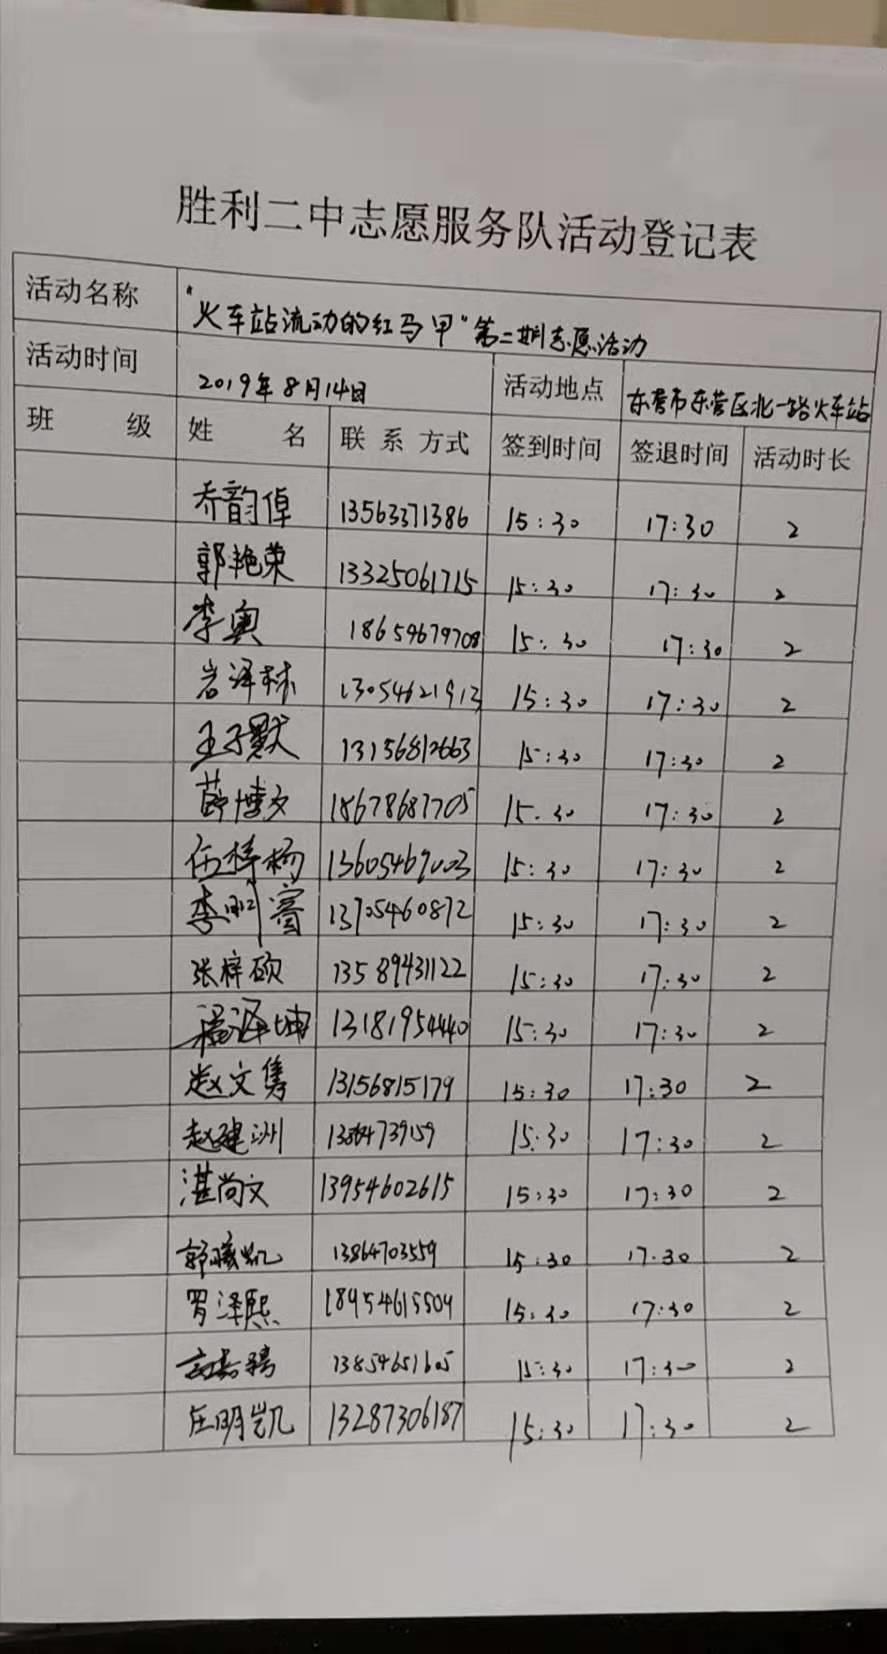 胜利二中志愿服务队活动登记表
活动名称 "火车站流动的红马甲"第二期志愿活动
活动时间 2019年8月14日 活动地点 东营市东营区北一路火车站
班 级 姓 名 联系方式 签到时间 签退时间 活动时长
乔韵倬 13563371386 15:30 17:30 2
郭艳荣 13325061715 15:30 17:30 2
李奥 18654679708 15:30 17:30 2
岩泽林 13054621913 15:30 17:30 2
王子默 13156812663 15:30 17:30 2
薛博文 18678687705 15:30 17:30 2
伍梓杨 13605469003 15:30 17:30 2
李 13705460872 15:30 17:30 2
张梓硕 13589431122 15:30 17:30 2
泽坤 13181954440 15:30 17:30 2
赵文隽 13156815179 15:30 17:30 2
赵建洲 15:30 17:30 2
湛尚文 13954602615 15:30 17:30 2
郭曦凯 13864703559 15:30 17:30 2
罗泽熙 18954615504 15:30 17:30 2
高嘉骋 13854651605 15:30 17:30 2
庄明凯 13287306187 15:30 17:30 2